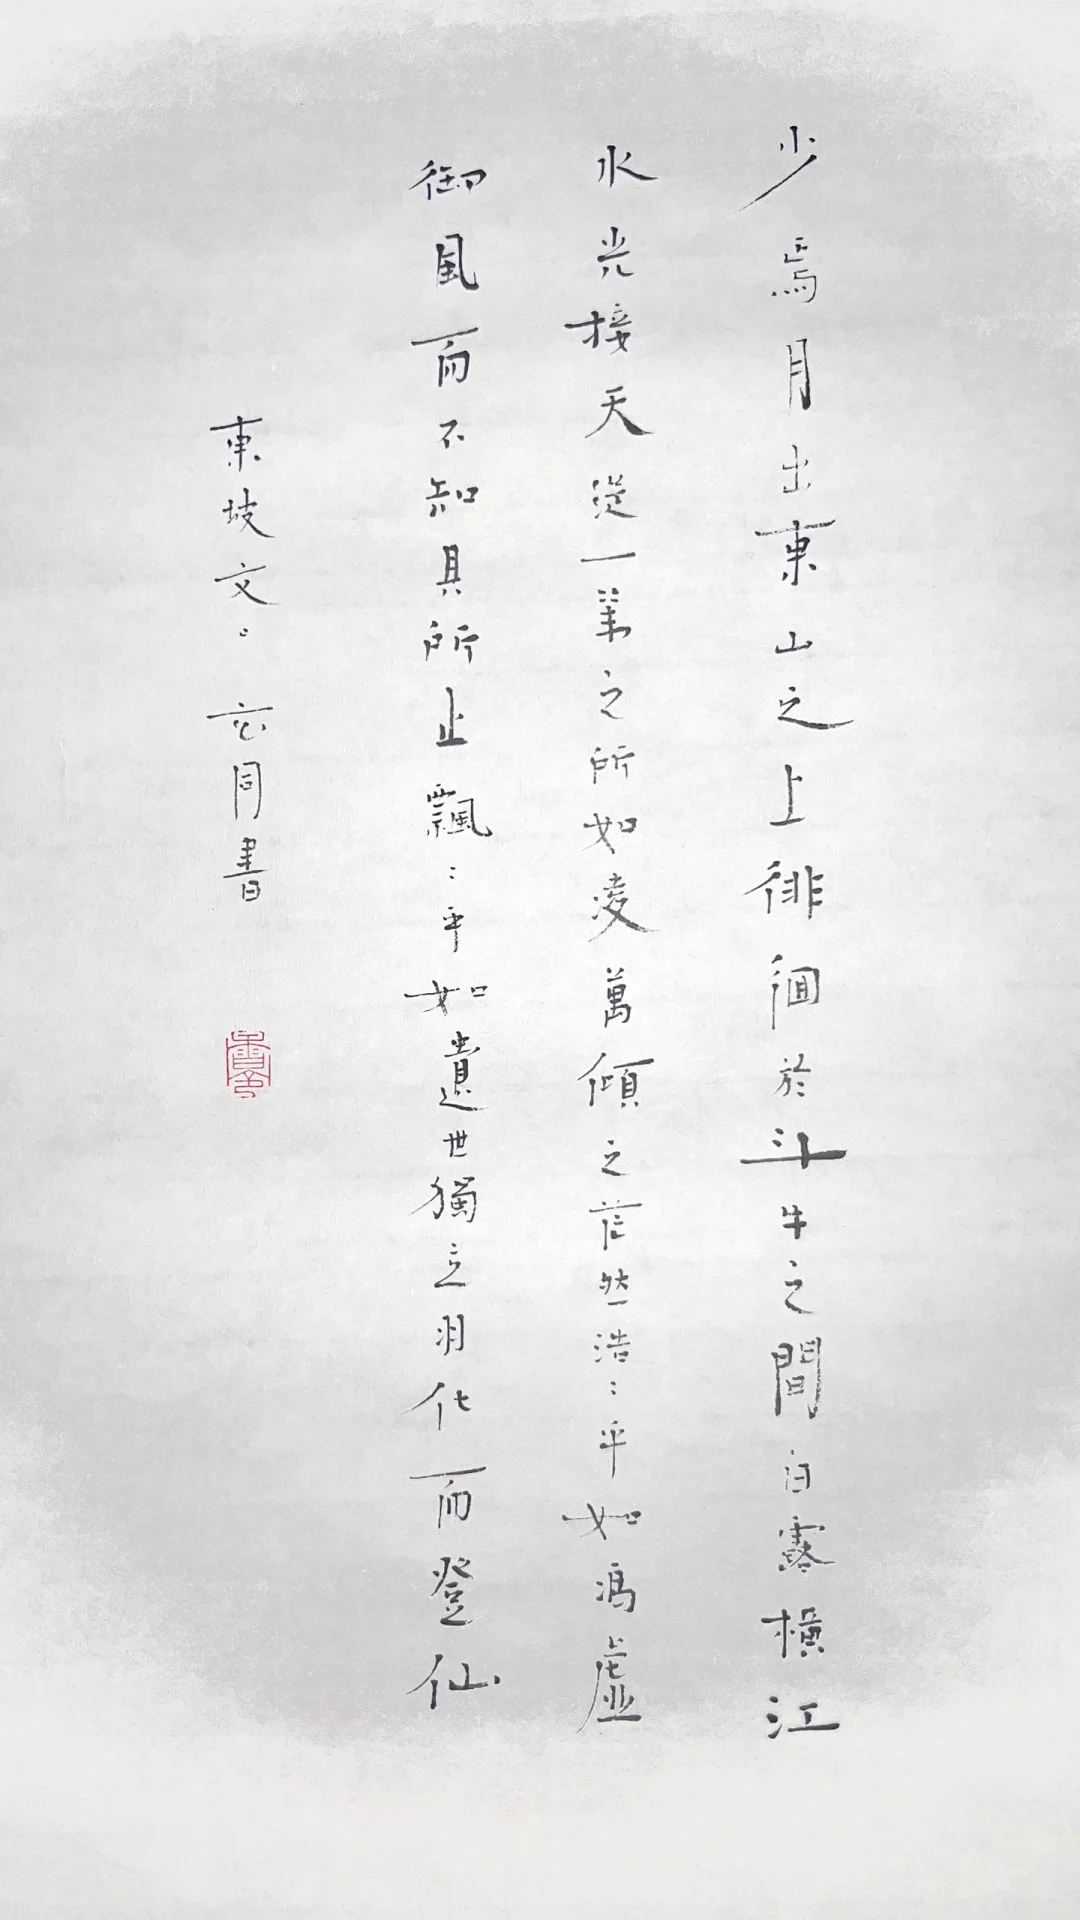 少焉月出東山之上徘徊於斗牛之間白露橫江
水光接天從一葦之所如凌萬傾之茫然浩：乎如馮虛
御風而不知其所止飄：乎如遺世獨立羽化而登仙
東坡文。同書